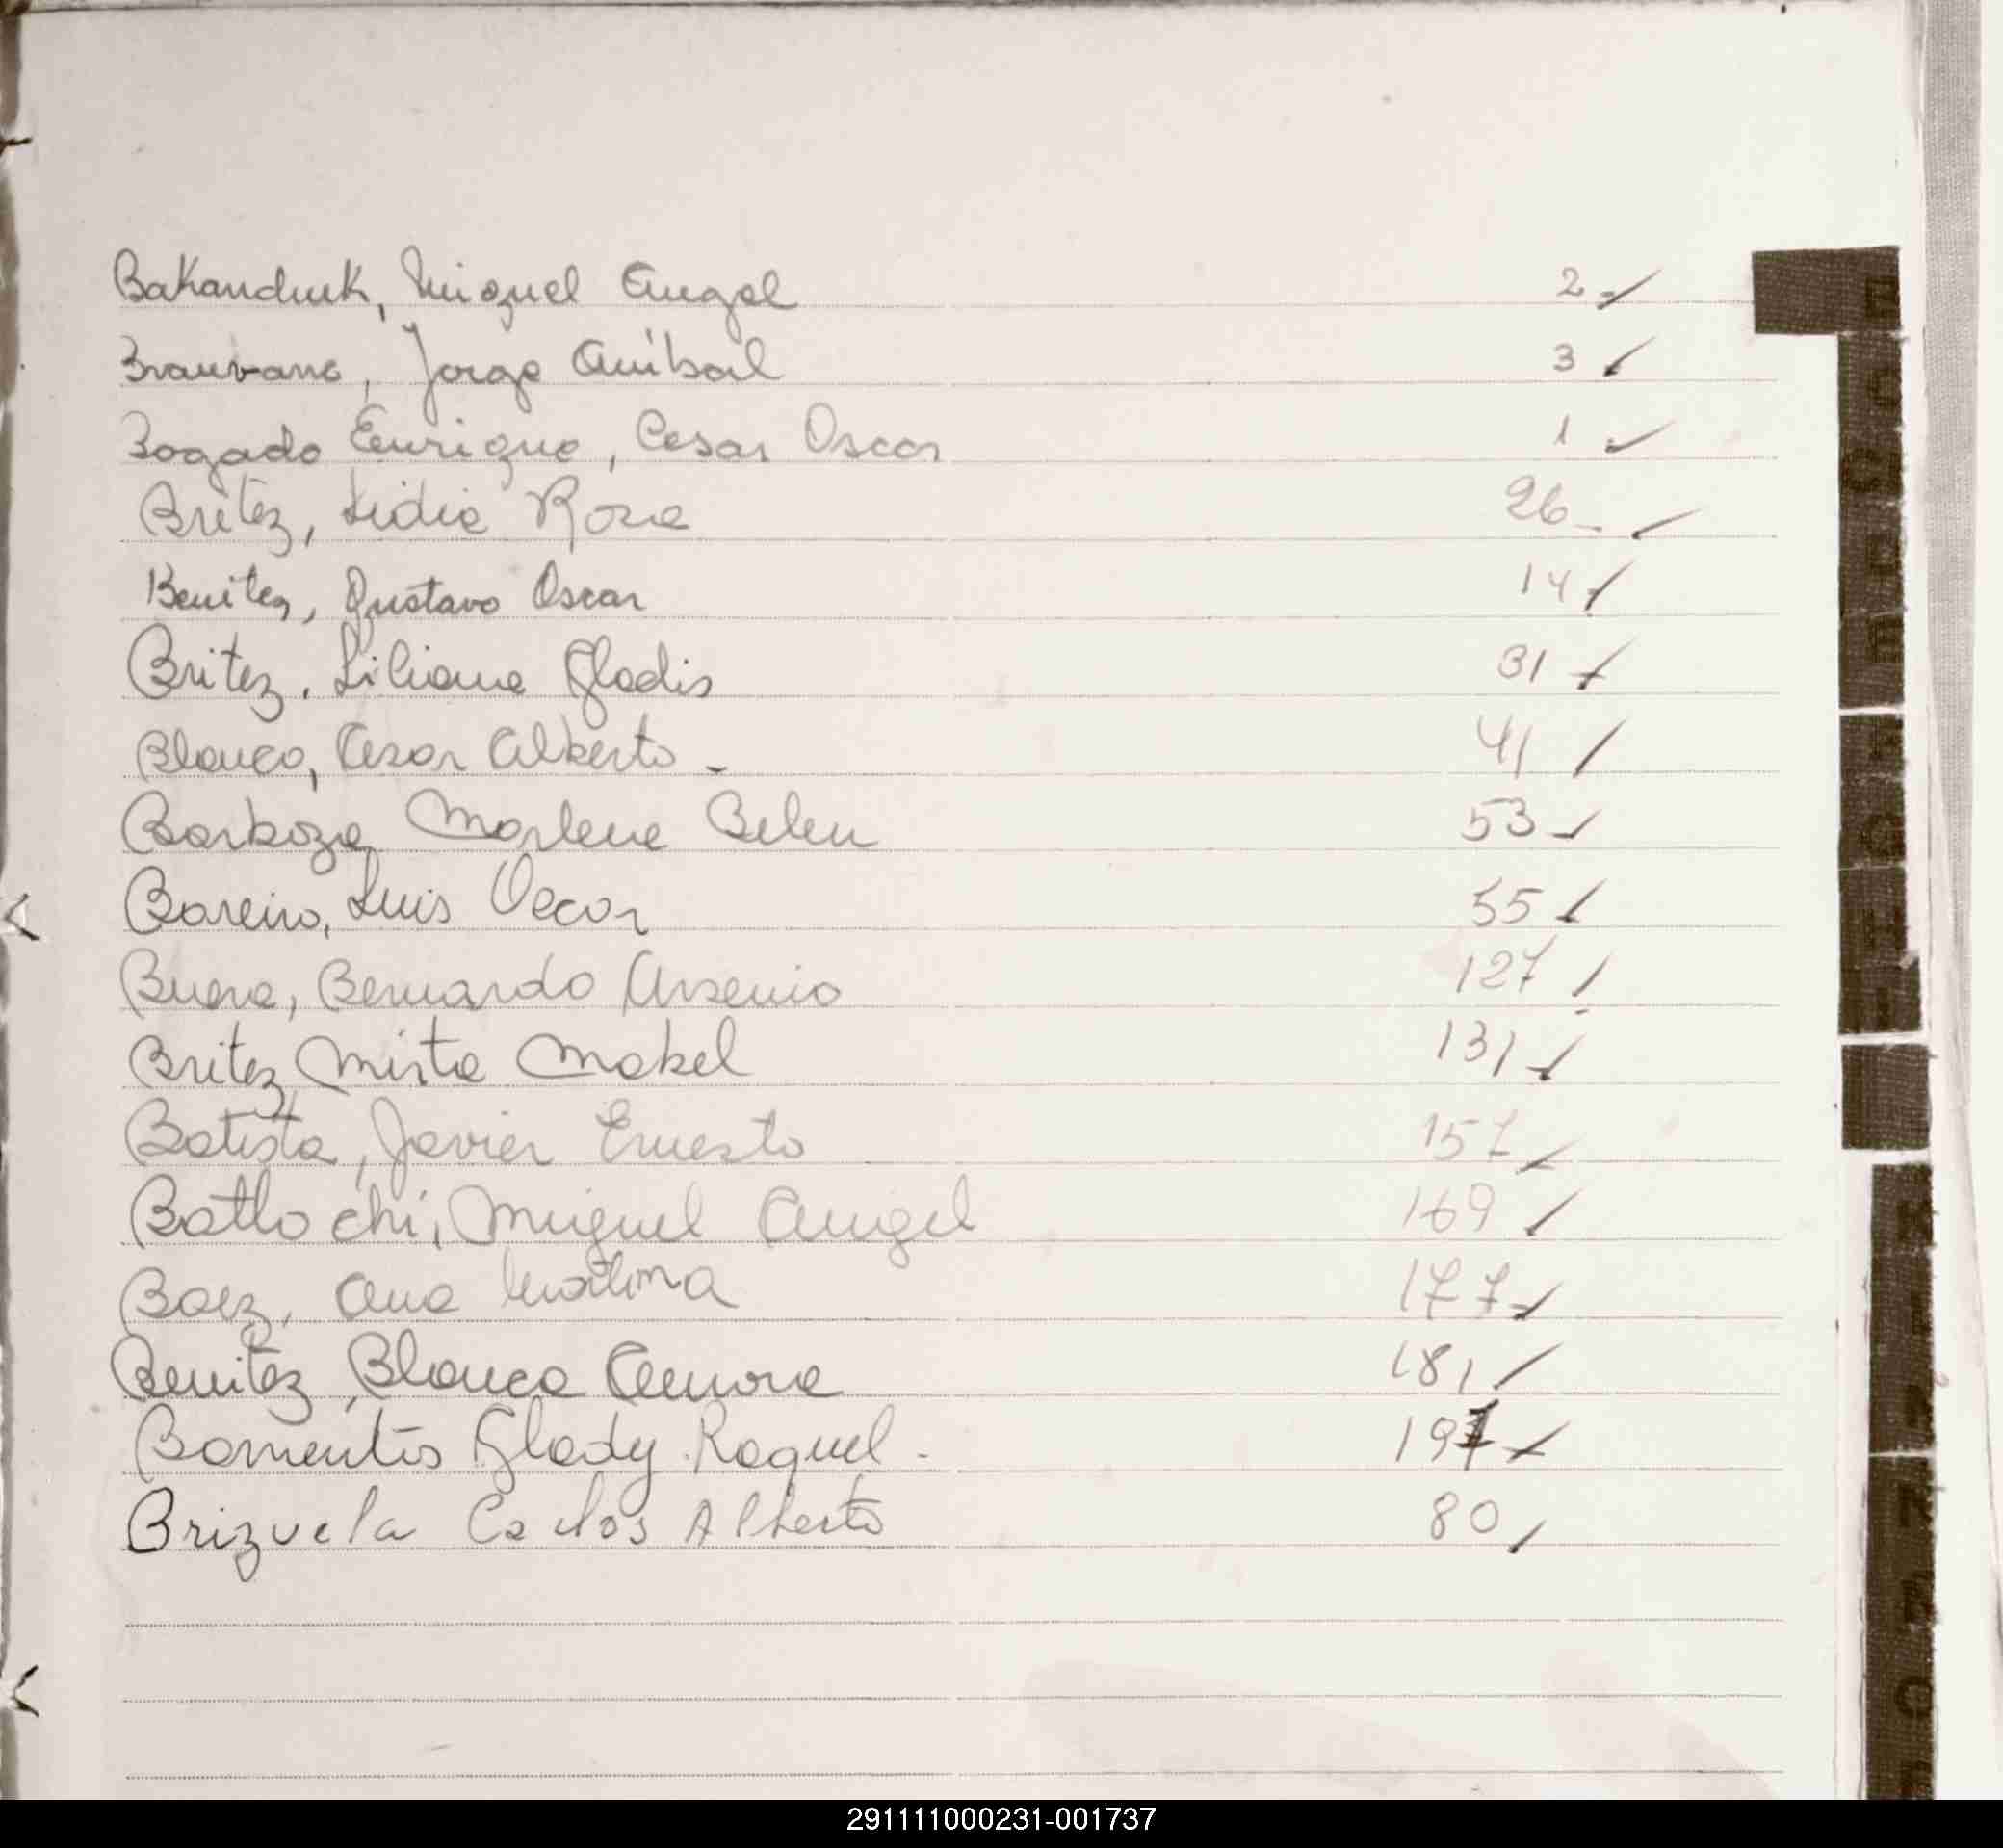 Bakanchuk, Miguel Angel 2-
Brauvano, Jorge Anibal 3
Bogado Enrique, Cesar Oscar 1
Britez, Lidia Rosa 26-
Benitez, Gustavo Oscar 14
Britez, Liliana Gladis 31
Blanco, Cesar Alberto - 41
Barboza, Marlene Belen 53
Bareiro, Luis Oscar 55
Buera, Bernardo Arsenio 127
Britez Mirta Mabel 131
Batista, Javier Ernesto 157
Batlochi, Miguel Angel 169
Baez, Ana 177
Benitez, Blanca 181
Barrientos Glady Raquel - 197
Brizuela Carlos Alberto 80
291111000231-001737